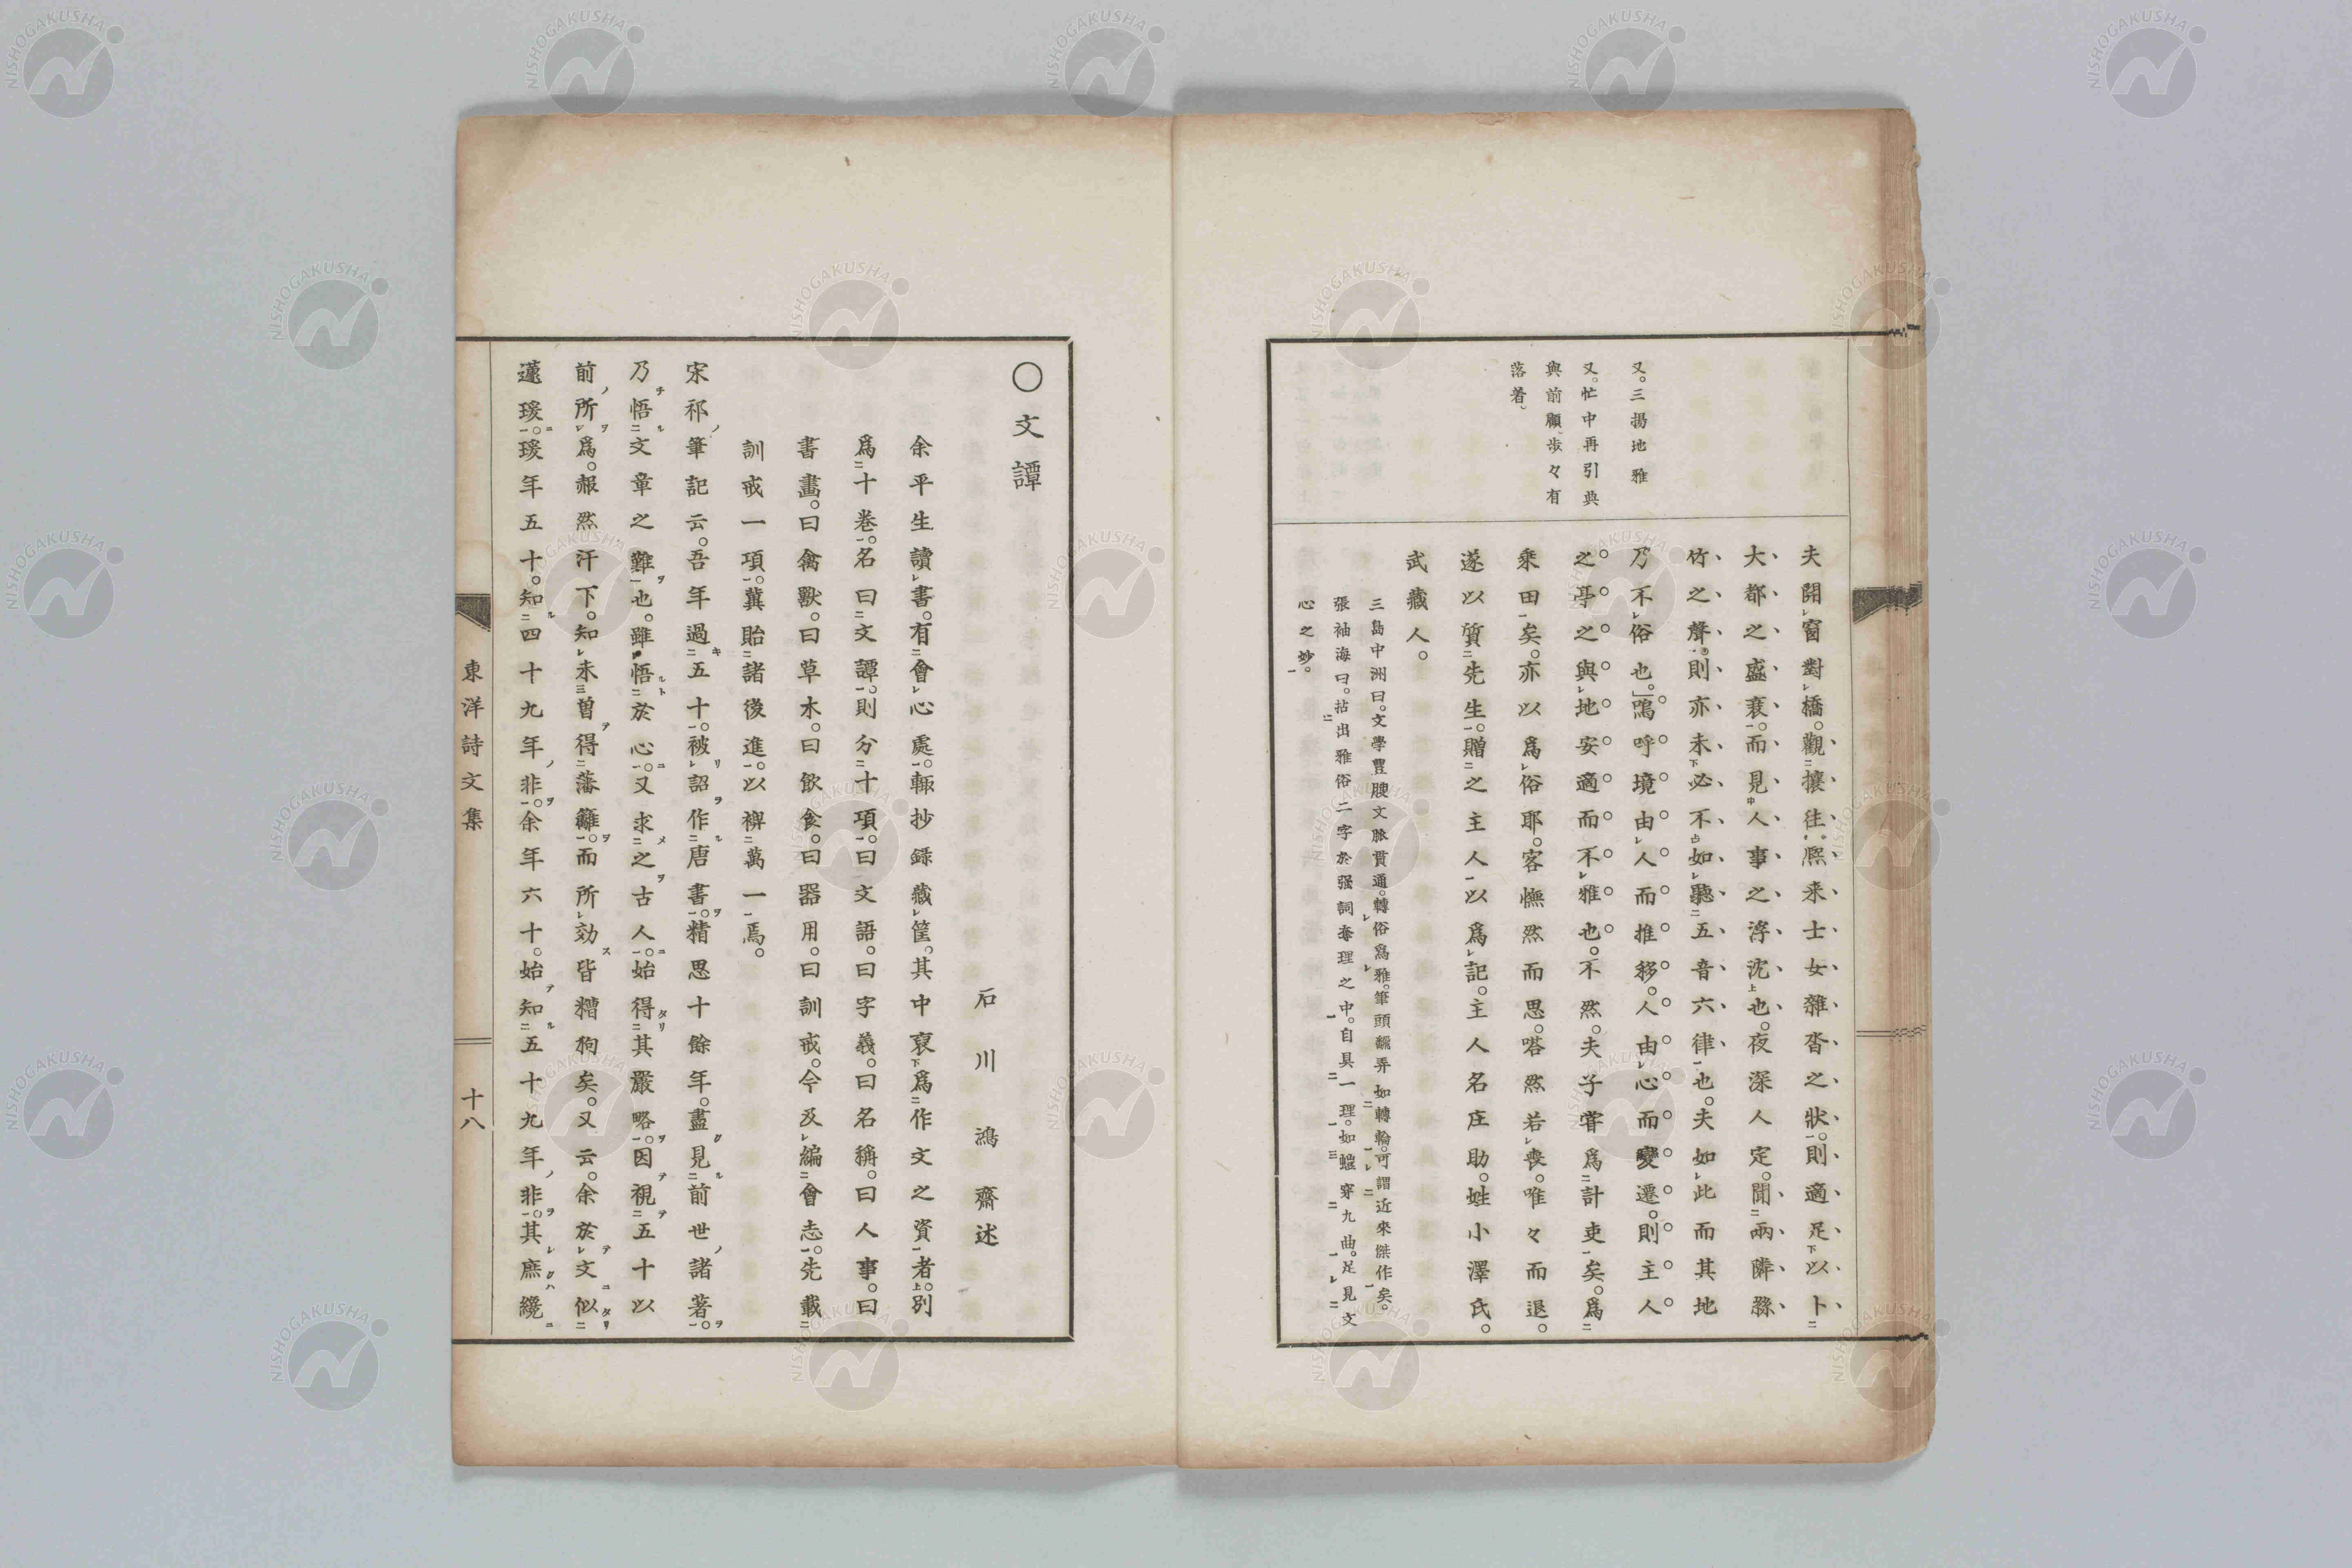 又。三揚地雅
又。忙中再引典
與前顧。步々有
落着、
夫開窗對橋。觀攘往熈来士女雜沓之狀。則適足以卜
大都之盛衰。而見人事之浮沈也。夜深人定。聞兩隣絲
竹之聲。則亦未必不如聽五音六律也。夫如此而其地
乃不俗也。嗚呼境由人而推移。人由心而變遷。則主人
之亭之與地安適而不雅也。不然。夫子甞爲計吏矣。爲
乘田矣。亦以爲俗耶。客憮然而思。嗒然若喪。唯々而退。
遂以質先生。贈之主人以爲記。主人名庄助。姓小澤氏。
武藏人。
三島中洲曰。文學豐腴文脉貫通。轉俗爲雅。筆頭飜弄如轉輪。可謂近來傑作矣。
張袖海曰。拈出雅俗二字於强詞奪理之中。自具一理。如螘穿九曲。足見文
心之妙。
〇文譚
石川鴻齋述
余平生讀書。有會心處。輙抄録藏筐。其中裒爲作文之資者。別
爲十卷。名曰文譚。則分十項。曰文語。曰字義。曰名稱。曰人事。曰
書畫。曰禽獸。曰草木。曰飮食。曰器用。曰訓戒。今及編會志。先載
訓戒一項。冀貽諸後進。以裨萬一焉。
宋祁ノ筆記云。吾年過キ五十。被リ詔ヲ作ル唐書ヲ。精思十餘年。盡ク見ル前世ノ諸著ヲ。
乃チ悟ル文章之難ヲ也。雖悟ルト於心ニ。又求メ之ヲ古人ニ。始得タリ其嚴略ヲ。因テ視テ五十以
前ノ所ヲ爲。赧然汗下。知未曽テ得藩籬ヲ。而所効ス皆糟粕矣。又云。余於テ文ニ似タリ
蘧瑗ニ。瑗年五十。知ル四十九年ノ非ヲ。余年六十。始テ知ル五十九年ノ非ヲ。其レ庶クハ纔ニ
東洋詩文集
十八